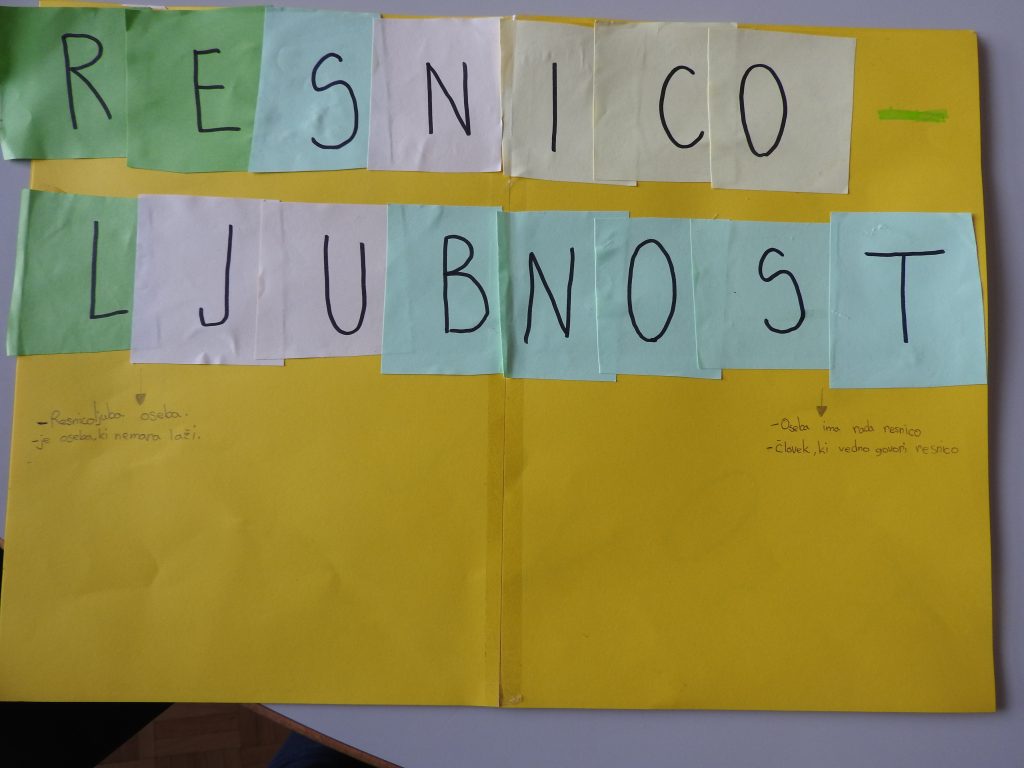 RESNICO-
LJUBNOST
- Resnicoljuba oseba.
- je oseba, ki nemara laži.
- Oseba ima rada resnico
- Človek, ki vedno govori resnico